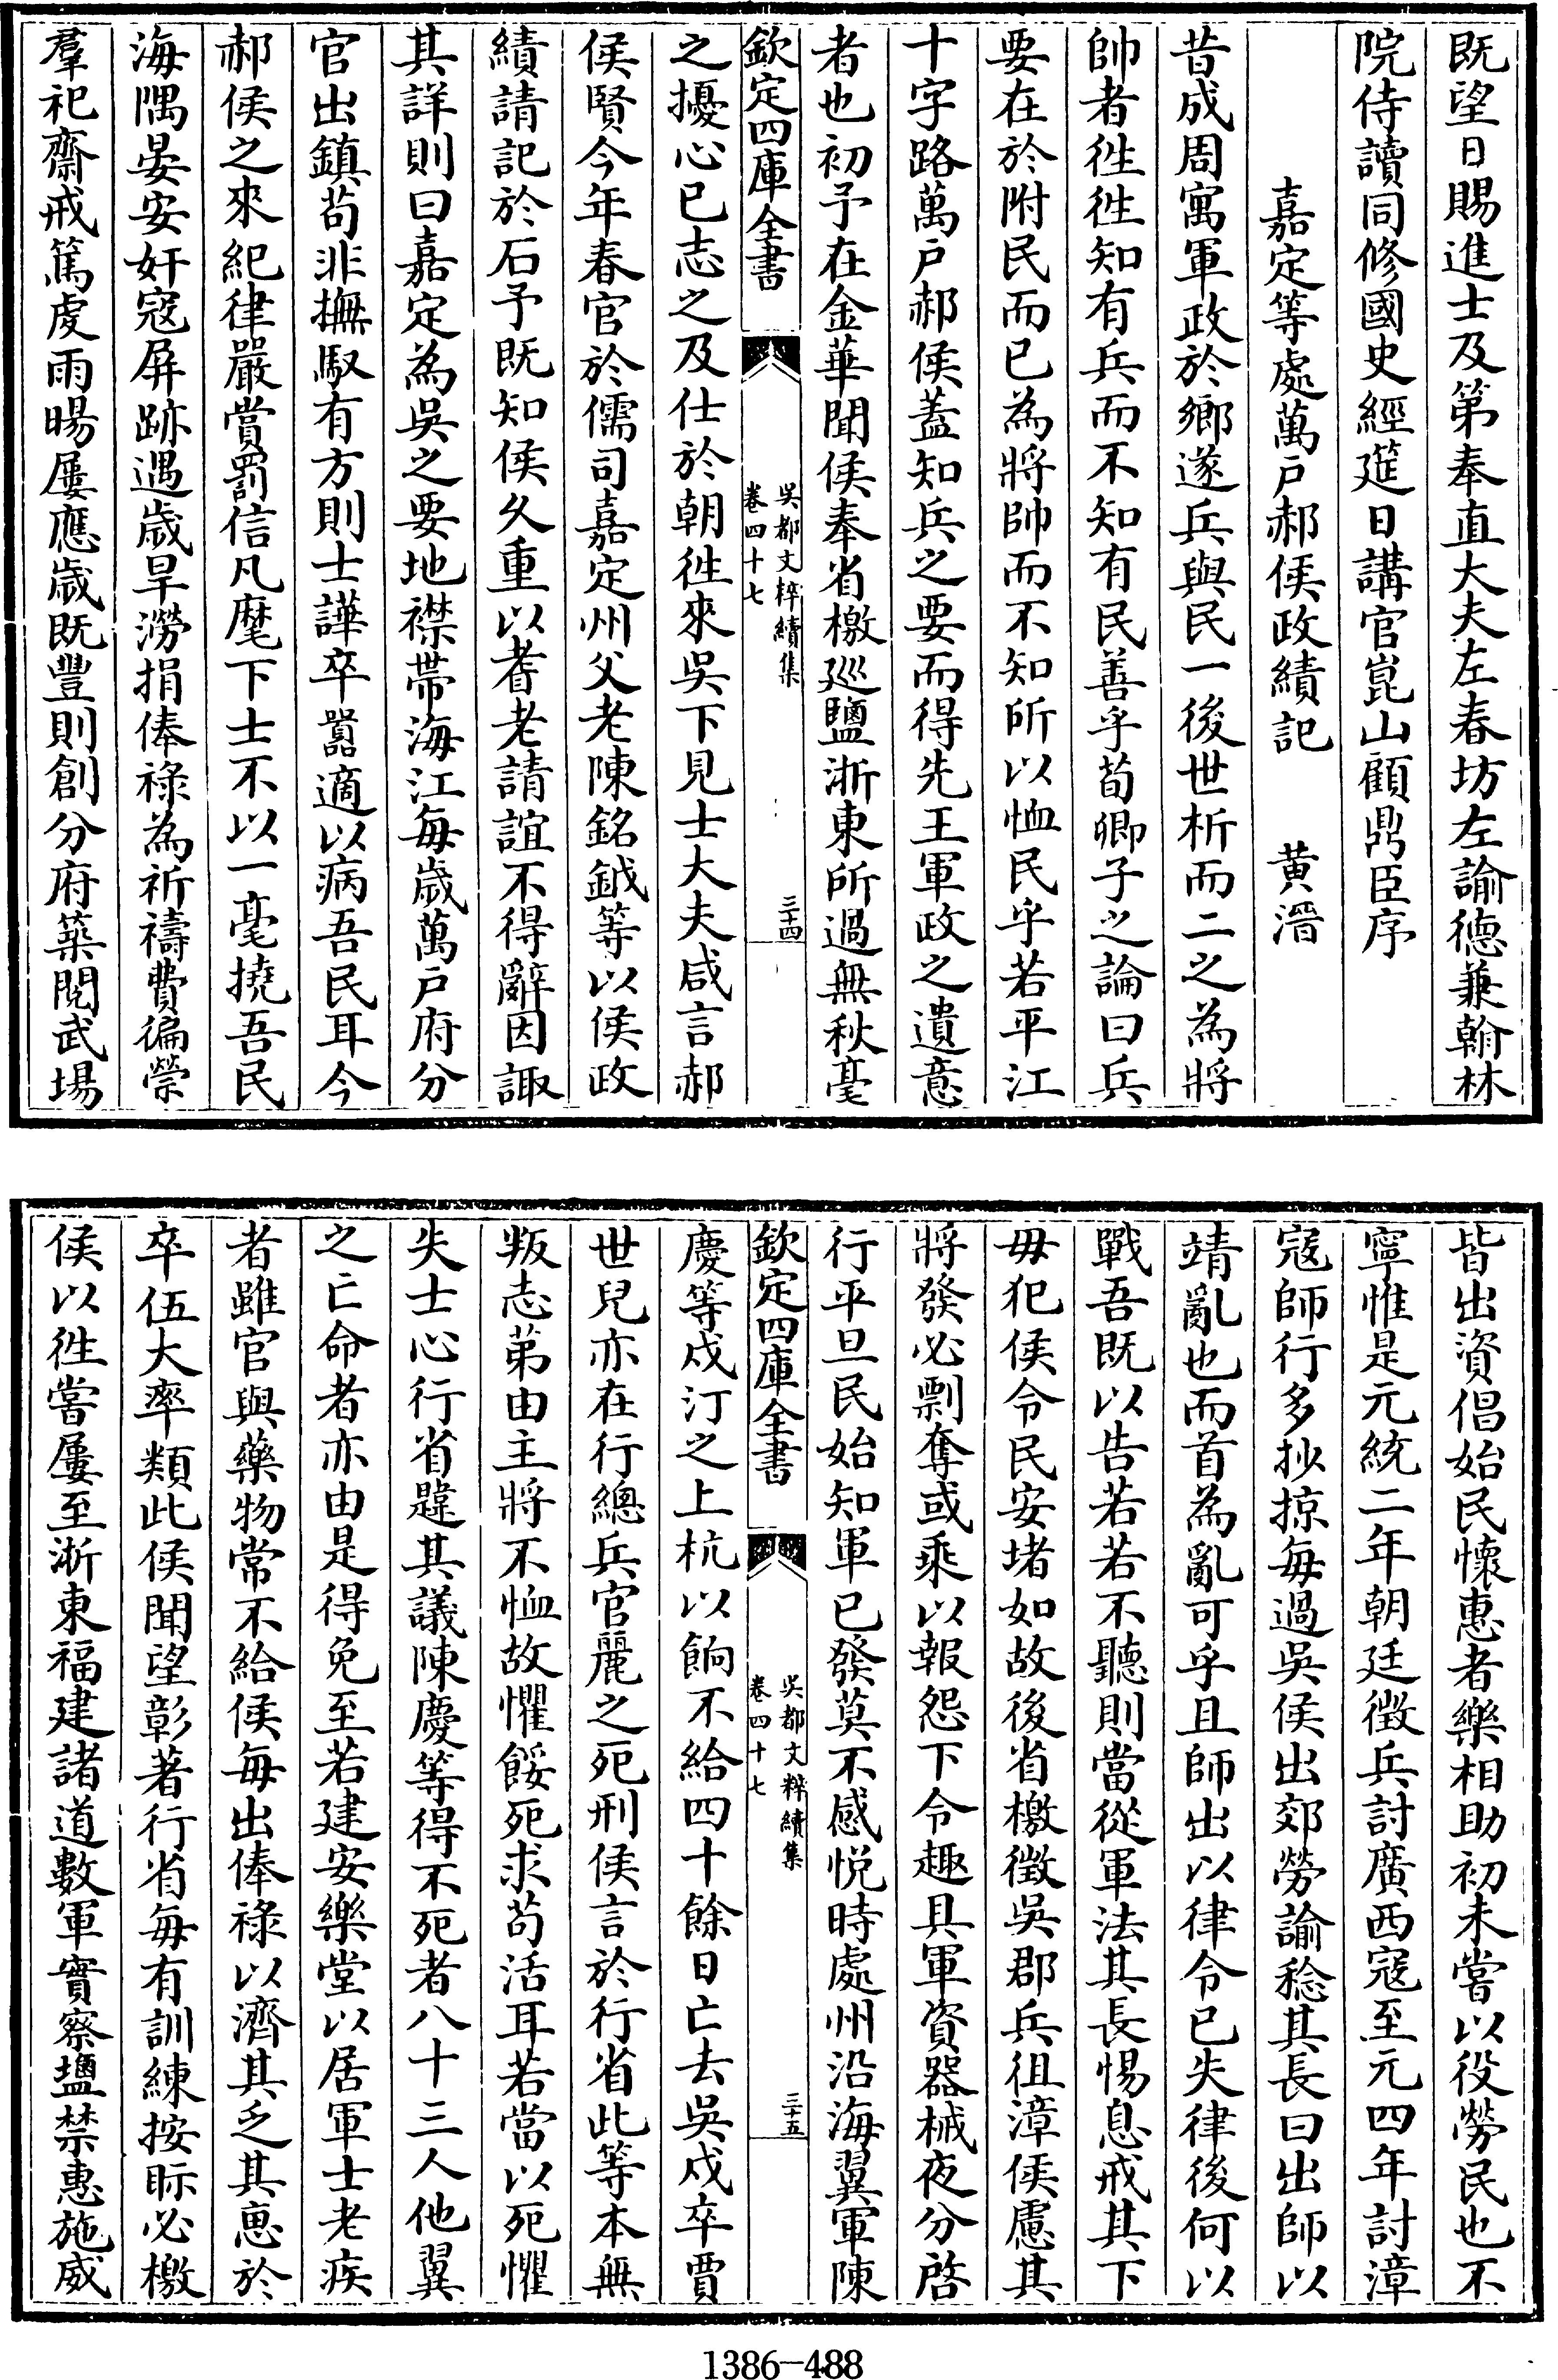 既望日賜進士及第奉直大夫左春坊左諭德兼翰林
院侍讀同修國史經筵日講官崑山顧鼎臣序
嘉定等處萬户郝侯政績記　黄溍
昔成周寓軍政於鄉遂兵與民一後世析而二之為將
帥者徃徃知有兵而不知有民善乎荀卿子之論曰兵
要在於附民而已為將帥而不知所以恤民乎若平江
十字路萬户郝侯蓋知兵之要而得先王軍政之遺意
者也初予在金華聞侯奉省檄廵鹽浙東所過無秋毫
欽定四庫全書
吳都文粹續集
卷四十七
三十四
之擾心已志之及仕於朝徃來吳下見士大夫咸言郝
侯賢今年春官於儒司嘉定州父老陳銘鉞等以侯政
績請記於石予既知侯久重以耆老請誼不得辭因諏
其詳則曰嘉定為吳之要地襟帶海江每歲萬户府分
官出鎮苟非撫馭有方則士譁卒囂適以病吾民耳今
郝侯之來紀律嚴賞罰信凡麾下士不以一毫撓吾民
海隅晏安奸寇屏跡遇歲旱澇捐俸祿為祈禱費徧禜
羣祀齋戒篤虔雨暘屢應歲既豐則創分府築閱武場
皆出資倡始民懷惠者樂相助初未嘗以役勞民也不
寧惟是元統二年朝廷徴兵討廣西寇至元四年討漳
寇師行多抄掠每過吳侯出郊勞諭稔其長曰出師以
靖亂也而首為亂可乎且師出以律令已失律後何以
戰吾既以告若若不聽則當從軍法其長惕息戒其下
毋犯侯令民安堵如故後省檄徴吳郡兵徂漳侯慮其
將發必剽奪或乘以報怨下令趣具軍資器械夜分啓
行平旦民始知軍已發莫不感悅時處州沿海翼軍陳
欽定四庫全書
吳都文粹續集
卷四十七
三十五
慶等戍汀之上杭以餉不給四十餘日亡去吳戍卒賈
世兒亦在行總兵官麗之死刑侯言於行省此等本無
叛志第由主將不恤故懼餒死求苟活耳若當以死懼
失士心行省韙其議陳慶等得不死者八十三人他翼
之亡命者亦由是得免至若建安樂堂以居軍士老疾
者雖官與藥物常不給侯每出俸祿以濟其乏其惠於
卒伍大率類此侯聞望彰著行省每有訓練按眎必檄
侯以徃嘗屢至浙東福建諸道數軍實察鹽禁惠施威
1386-488